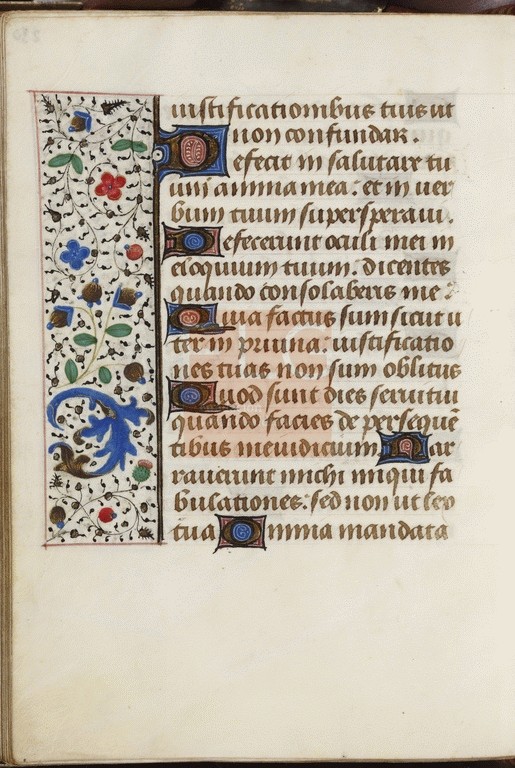 iustificationibus tuis ut
non confundar.
Defecit in salutare tu
um anima mea: et in uer
bum tuum supersperaui.
Defecerunt oculi mei in
eloquium tuum: dicentes
quando consolaberis me?
Quia factus sum sicut u
ter in pruina: iustificatio
nes tuas non sum oblitus
Quod sunt dies serui tui
quando facies de persequē
tibus me iudicium Nar
rauerunt michi iniqui fa
bulationes: sed non ut lex
tua Omnia mandata